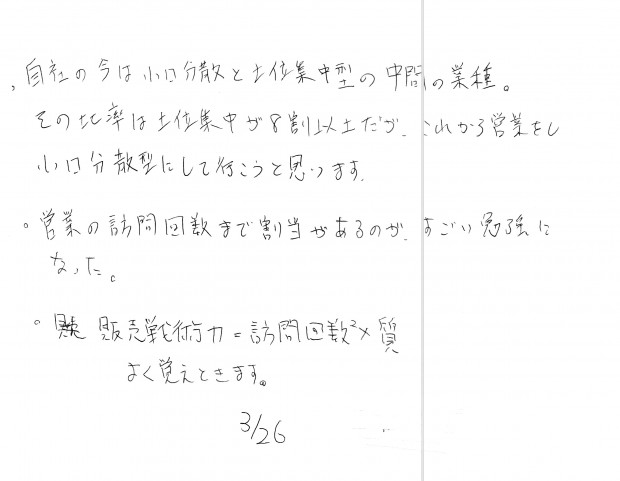 、自社の今は小口分散と上位集中型の中間の業種。
その比率は上位集中が8割以上だが、これから営業をし
小口分散型にして行こうと思います。
。営業の訪問回数まで割当があるのが、すごい勉強に
なった。
。販売戦術力=訪問回数²×質
よく覚えときます。
3/26